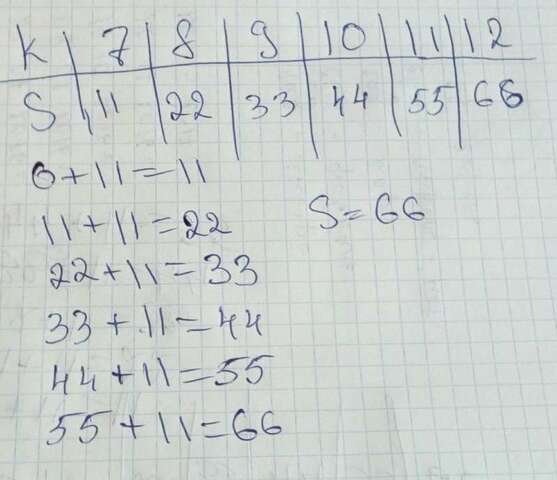 K 7 8 9 10 11 12
S 11 22 33 44 55 66
0+11=11
11+11=22 S=66
22+11=33
33+11=44
44+11=55
55+11=66